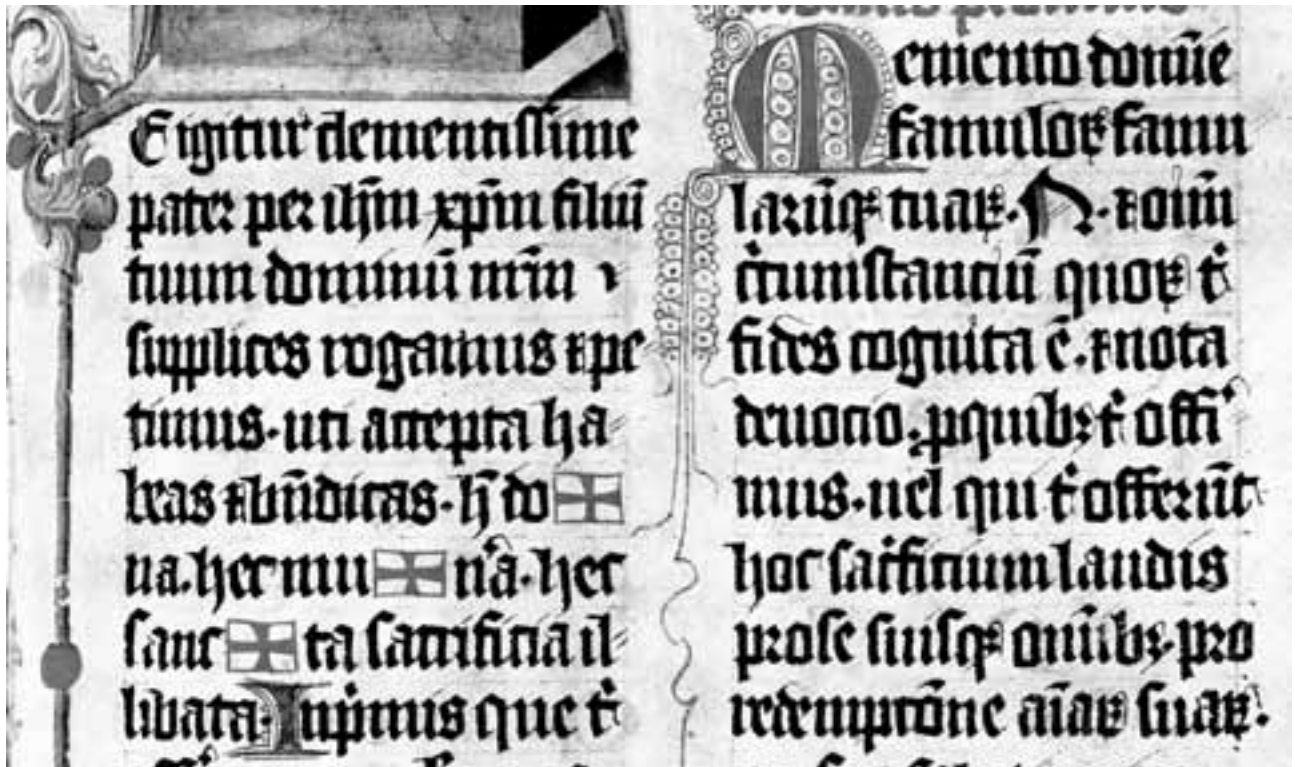 E igitur clementissime
pater per ihm̄ xp̄m filiū
tuum dominū nr̄m
supplices rogamus ⁊ pe
timus · uti accepta ha
beas ⁊ bn̄dicas · h̄ do
na · hec mu n̄a · hec
sanc ta sacrificia il
libata · Inp̄mis que t̄
M emento domīe
famuloꝝ famu
larūqꝫ tuaꝝ · N · ⁊ oīm̄
circumstanciū quoꝝ t̄
fides cognita ē · ⁊ nota
deuocio · ꝓ quibꝫ t̄ offeri
mus · uel qui t̄ offerūt
hoc sac̄ficium laudis
pro se suisqꝫ om̄ibꝫ · pro
redemptōne aīaꝝ suaꝝ ·